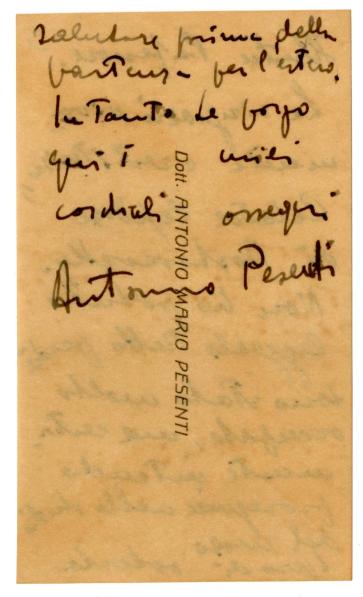 salutare prima della
partenza per l'estero.
Intanto Le porgo
qui i miei
cordiali ossequi
Antonio Pesenti
Dott. ANTONIO MARIO PESENTI